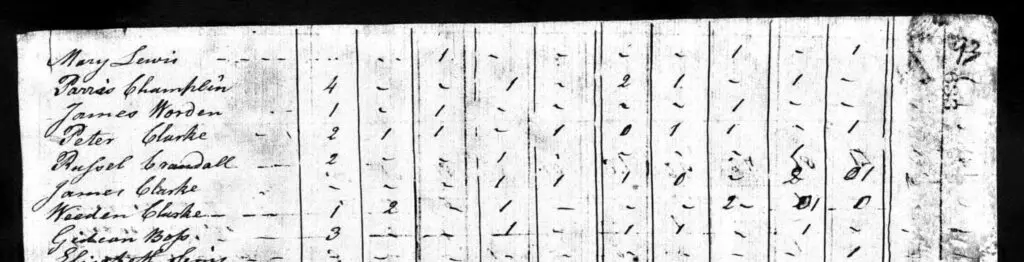 Mary Lewis - - - - - - 1 - - - - 1 - 1 93
Parris Champlin 4 - - 1 - 2 1 - 1 - 633
James Worden - 1 - 1 - - - - 1 - -
Peter Clarke - - 2 1 1 - 1 0 1 1 - 1
Russel Crandall - - 2 - - 1
James Clarke - - - 1 1 1 0 - 2 01
Weeden Clarke - - - 1 2 - 1 - - - 2 01 0
Gideon Boss - 3 - - 1 - 1 1 - 1 -
Elizabeth Lewis 1